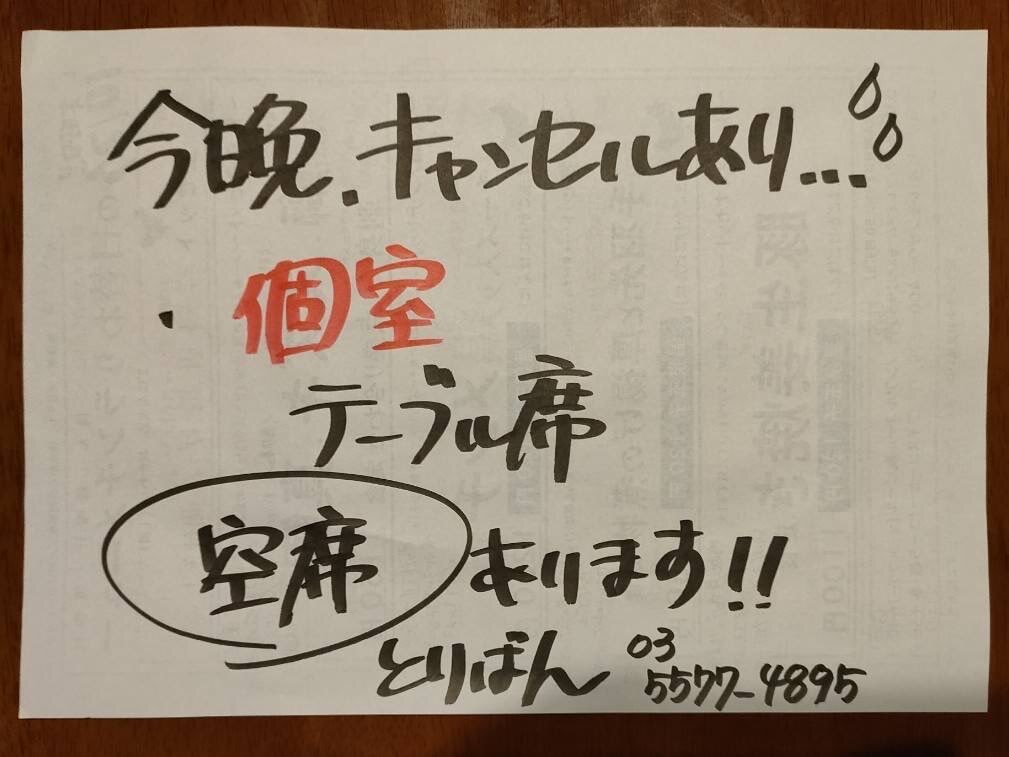 今晩.キャンセルあり...
・個室
テーブル席
空席あります!!
とりばん 03
5577-4895